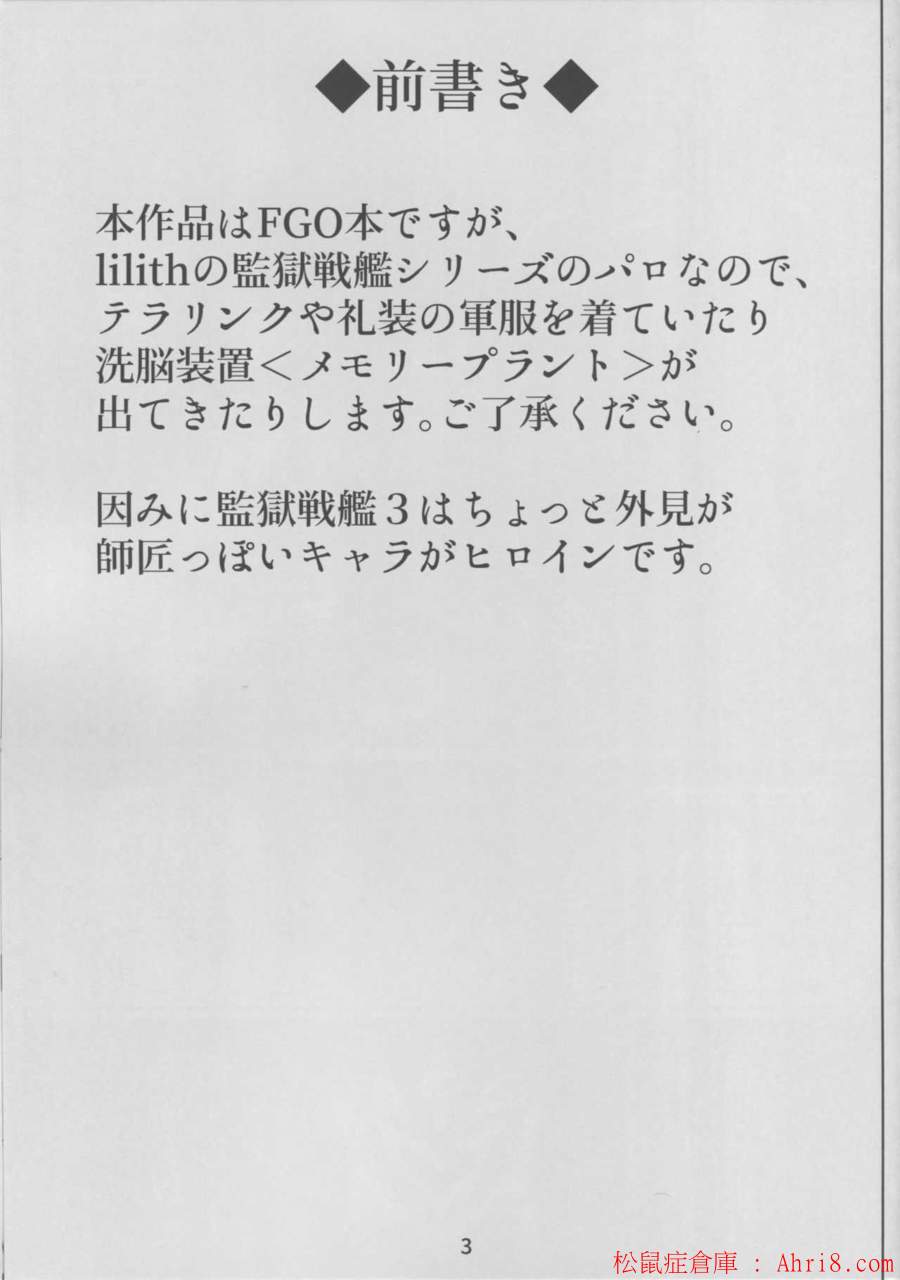 ◆前書き◆
本作品はFGO本ですが、
lilithの監獄戦艦シリーズのパロなので、
テラリンクや礼装の軍服を着ていたり
洗脳装置＜メモリープラント＞が
出てきたりします。ご了承ください。
因みに監獄戦艦３はちょっと外見が
師匠っぽいキャラがヒロインです。
3
松鼠症倉庫 : Ahri8.com